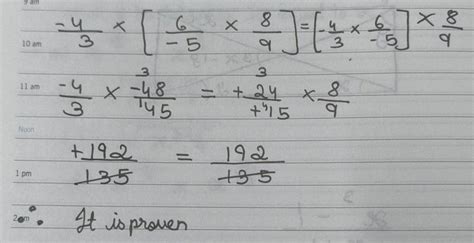 9 am
-4/3 × [6/-5 × 8/9] = [-4/3 × 6/-5] × 8/9
10 am
11 am
-4/3 × -48/45 = +24/+15 × 8/9
Noon
+192/135 = 192/135
1 pm
2 pm
∴ It is proven